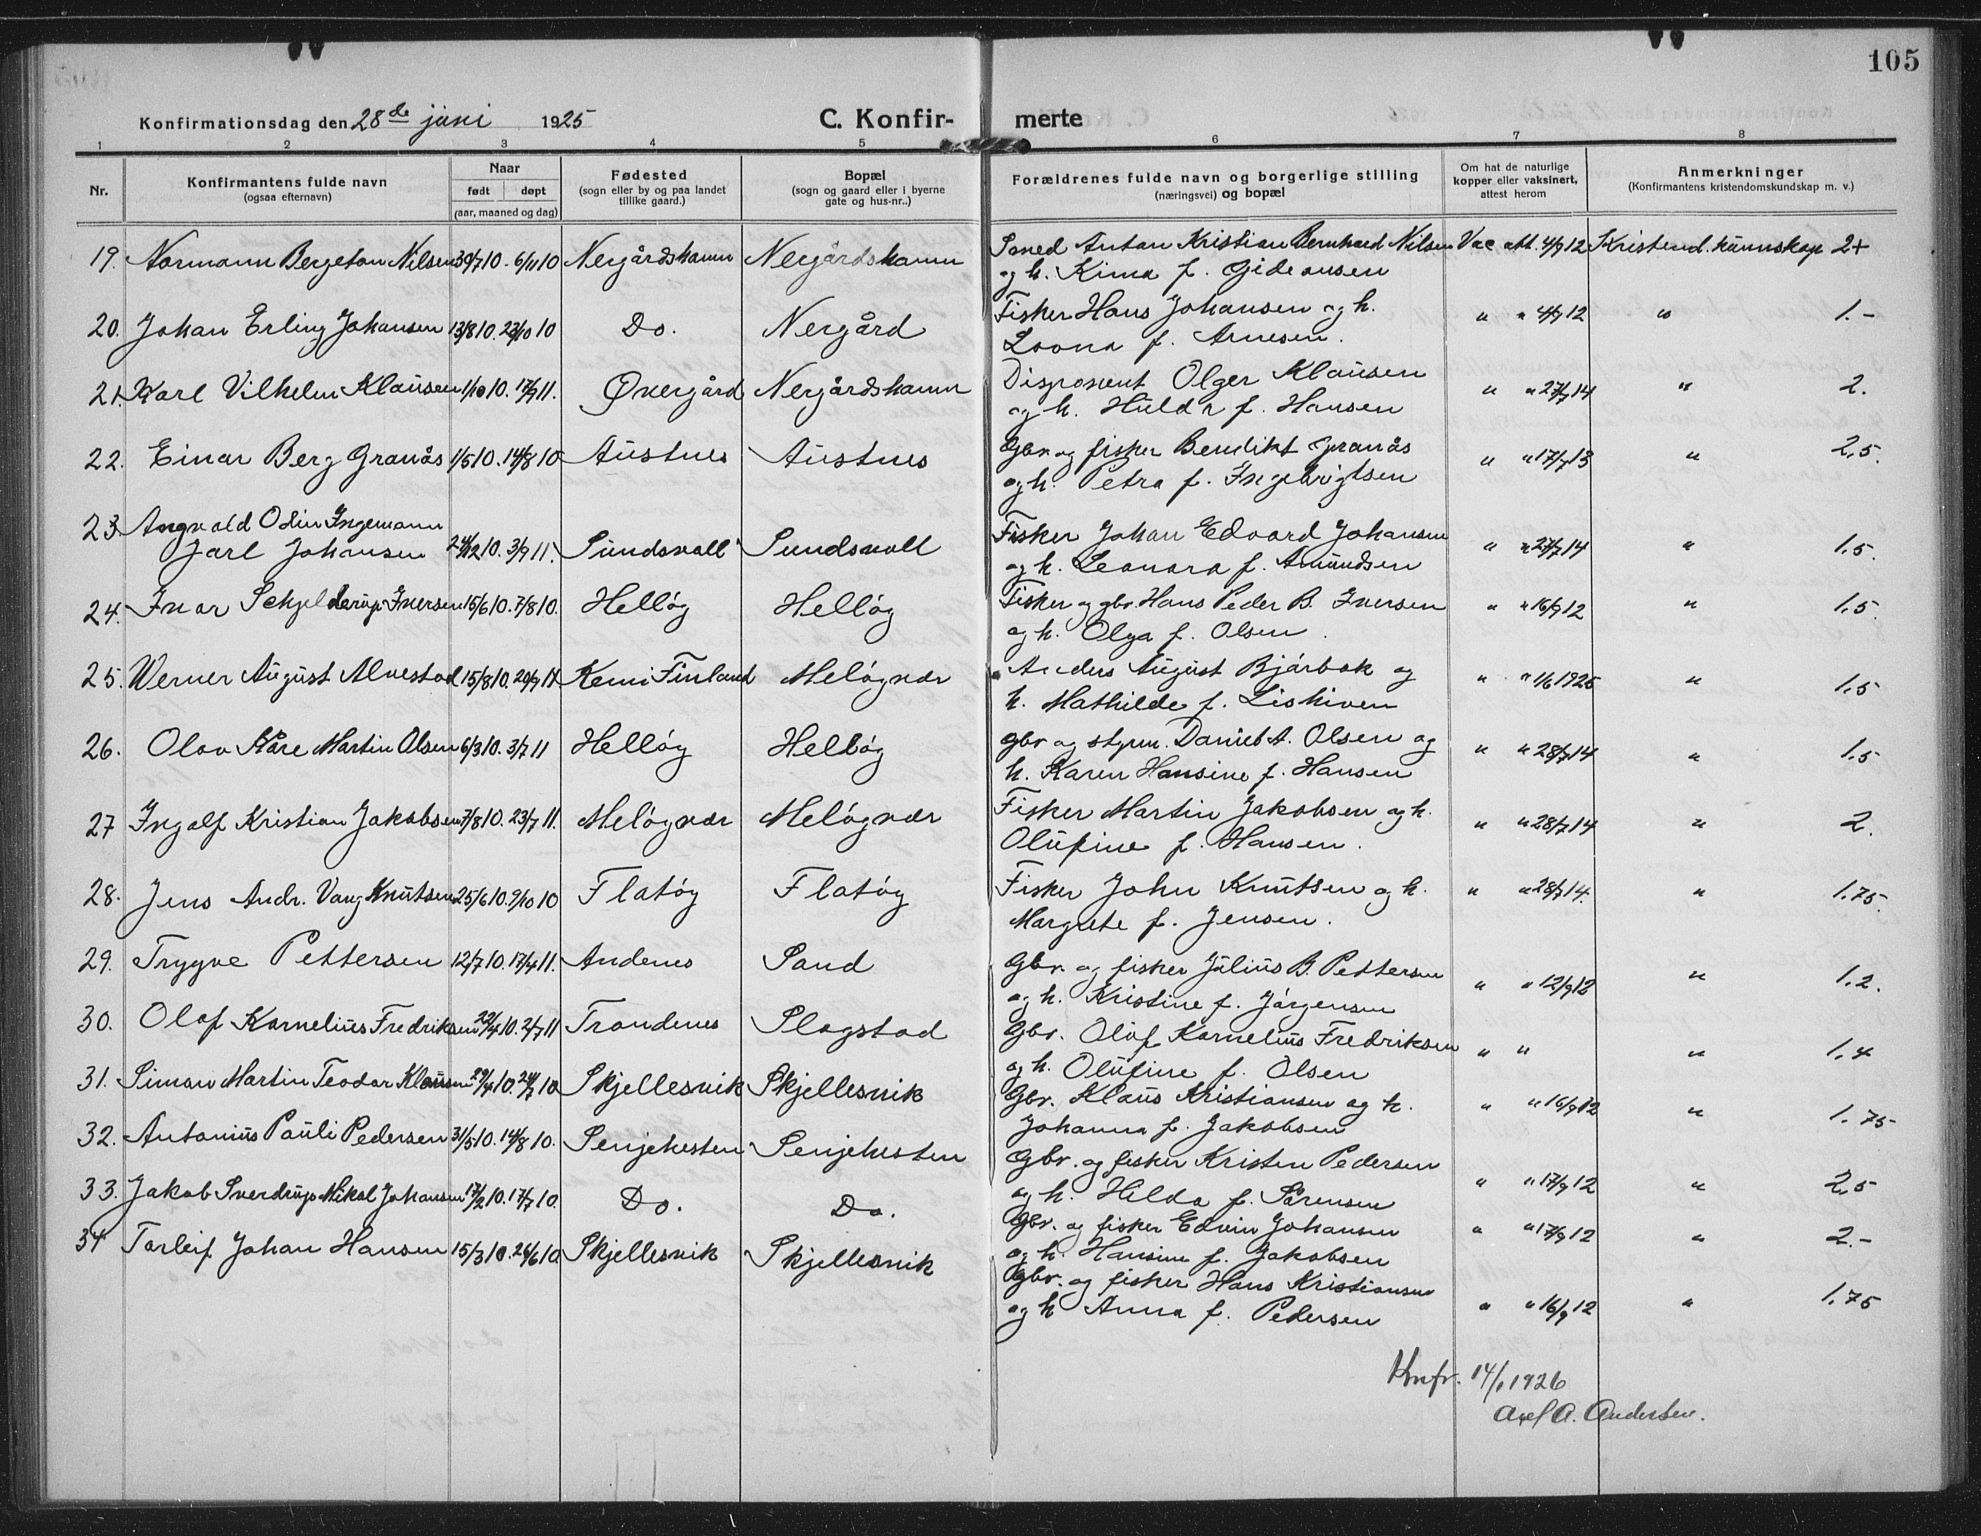 105
Konfirmationsdag den 28de juni 1925
C. Konfir- merte
1 2 3 4 5 6 7 8
Nr.
Konfirmantens fulde navn
(ogsaa efternavn)
Naar
født døpt
(aar, maaned og dag)
Fødested
(sogn eller by og paa landet
tillike gaard.)
Bopæl
(sogn og gaard eller i byerne
gate og hus-nr..)
Forældrenes fulde navn og borgerlige stilling
(næringsvei) og bopæl
Om hat de naturlige
kopper eller vaksinert,
attest herom
Anmerkninger
(Konfirmantens kristendomskundskap m. v.)
19. Normann Bergeton Nilsen 30/7 10. 6/11 10 Nergårdshamn Nergårdshamn Smed Anton Kristian Bernhard Nilsen Vac att. 4/9 12 Kristend. kunnskap 2+
og h. Kima f. Gideonsen
20. Johan Erling Johansen 13/8 10. 23/10 10 Do. Nergård Fisker Hans Johansen og h. " " 4/9 12 " 1.-
Lovna f. Arnesen.
21. Karl Vilhelm Klausen 1/10 10. 17/9 11. Øvergård Nergårdshamn Disponent Olger Klausen " " 27/7 14 " 2.
og h. Hulda f. Hansen
22. Einar Berg Granås 1/5 10. 14/8 10 Austnes Austnes Gbr. og fisker Bendikt Granås " " 17/7 13 " 2,5.
og h. Petra f. Ingebrigtsen
23 Angvald Odin Ingemann
Jarl Johansen 24/12 10. 3/9 11. Sundsvoll Sundsvoll Fisker Johan Edvard Johansen " " 27/7 14 " 1.5.
og h. Leonora f. Amundsen
24. Ivar Schjelderup Iversen 15/6 10. 7/8 10. Helløy Helløy Fisker og gbr. Hans Peder B. Iversen " " 16/9 12 " 1.5.
og h. Olga f. Olsen.
25. Werner August Alvestad 15/8 10. Kemi Finland Meløyvær Anders August Bjørbak og " " 1/6 1925 " 1.5
h. Mathilde f.
26. Olov Kåre Martin Olsen 6/3 10. 3/7 11 Helløy Helløy gbr og styrm. Daniel A. Olsen og " " 28/7 14 " 1.5
h. Karen Hansine f. Hansen
27 Ingolf Kristian Jakobsen 7/8 10. 23/7 11. Meløyvær Meløyvær Fisker Martin Jakobsen og h. " " 28/7 14 " 2.
Olufine f. Hansen.
28. Jens Andr. Vang Knutsen 25/6 10. 9/10 10 Flatøy Flatøy Fisker John Knutsen og h. " " 28/7 14. " 1.75.
Margrete f. Jensen.
29. Trygve Pettersen 12/7 10. 17/4 11. Andenes Sand Gbr. og fisker Julius B. Pettersen " " 12/9 12 " 1.2.
og h. Kristine f. Jørgensen
30. Olaf Kornelius Fredriksen 22/4 10. 2/7 11 Trondenes Slagstad Gbr. Olof Kornelius Fredriksen " " " 1.4
og h. Olufine f. Olsen
31. Simon Martin Teodor Klausen 29/4 10. 24/7 10 Skjellesvik Skjellesvik Gbr. Klaus Kristiansen og h. " " 16/9 12 " 1.75-
Johanna f. Jakobsen
32. Antonius Pauli Pedersen 31/5 10. 14/8 10. Senjehesten Senjehesten Gbr. og fisker Kristen Pedersen " " 17/9 12 " 2,5
og h. Hilda f. Sørensen
33. Jakob Sverdrup Mikal Johansen 17/2 10. 17/7 10. Do. Do. Gbr. og fisker Edvin Johansen " " 17/9 12 " 2.-
og h. Hansine f. Jakobsen
34 Torleif Johan Hansen 15/3 10. 26/6 10. Skjellesvik Skjellesvik Gbr. og fisker Hans Kristiansen " " 16/9 12 " 1.75
og h Anna f. Pedersen
Knfr. 14/1 1926
Axel A. Andersen.